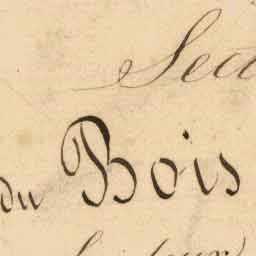 Sect
du Bois